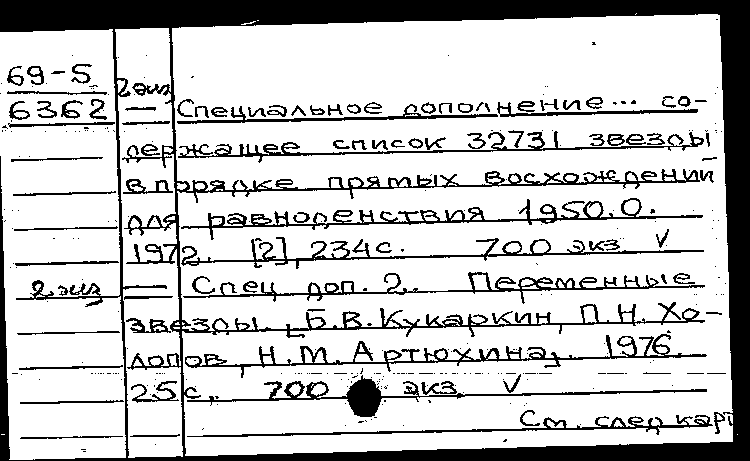 69-5
6362 2 экз — Специальное дополнение... со-
держащее список 32731 звезды
в порядке прямых восхождений
для равноденствия 1950.0.
1972. [2], 234 с. 700 экз. V
2 экз — Спец. доп. 2. Переменные
звезды. Б.В. Кукаркин, П.Н. Хо-
лопов, Н.М. Артюхина. 1976.
25 с. 700 экз. V
См. след карт